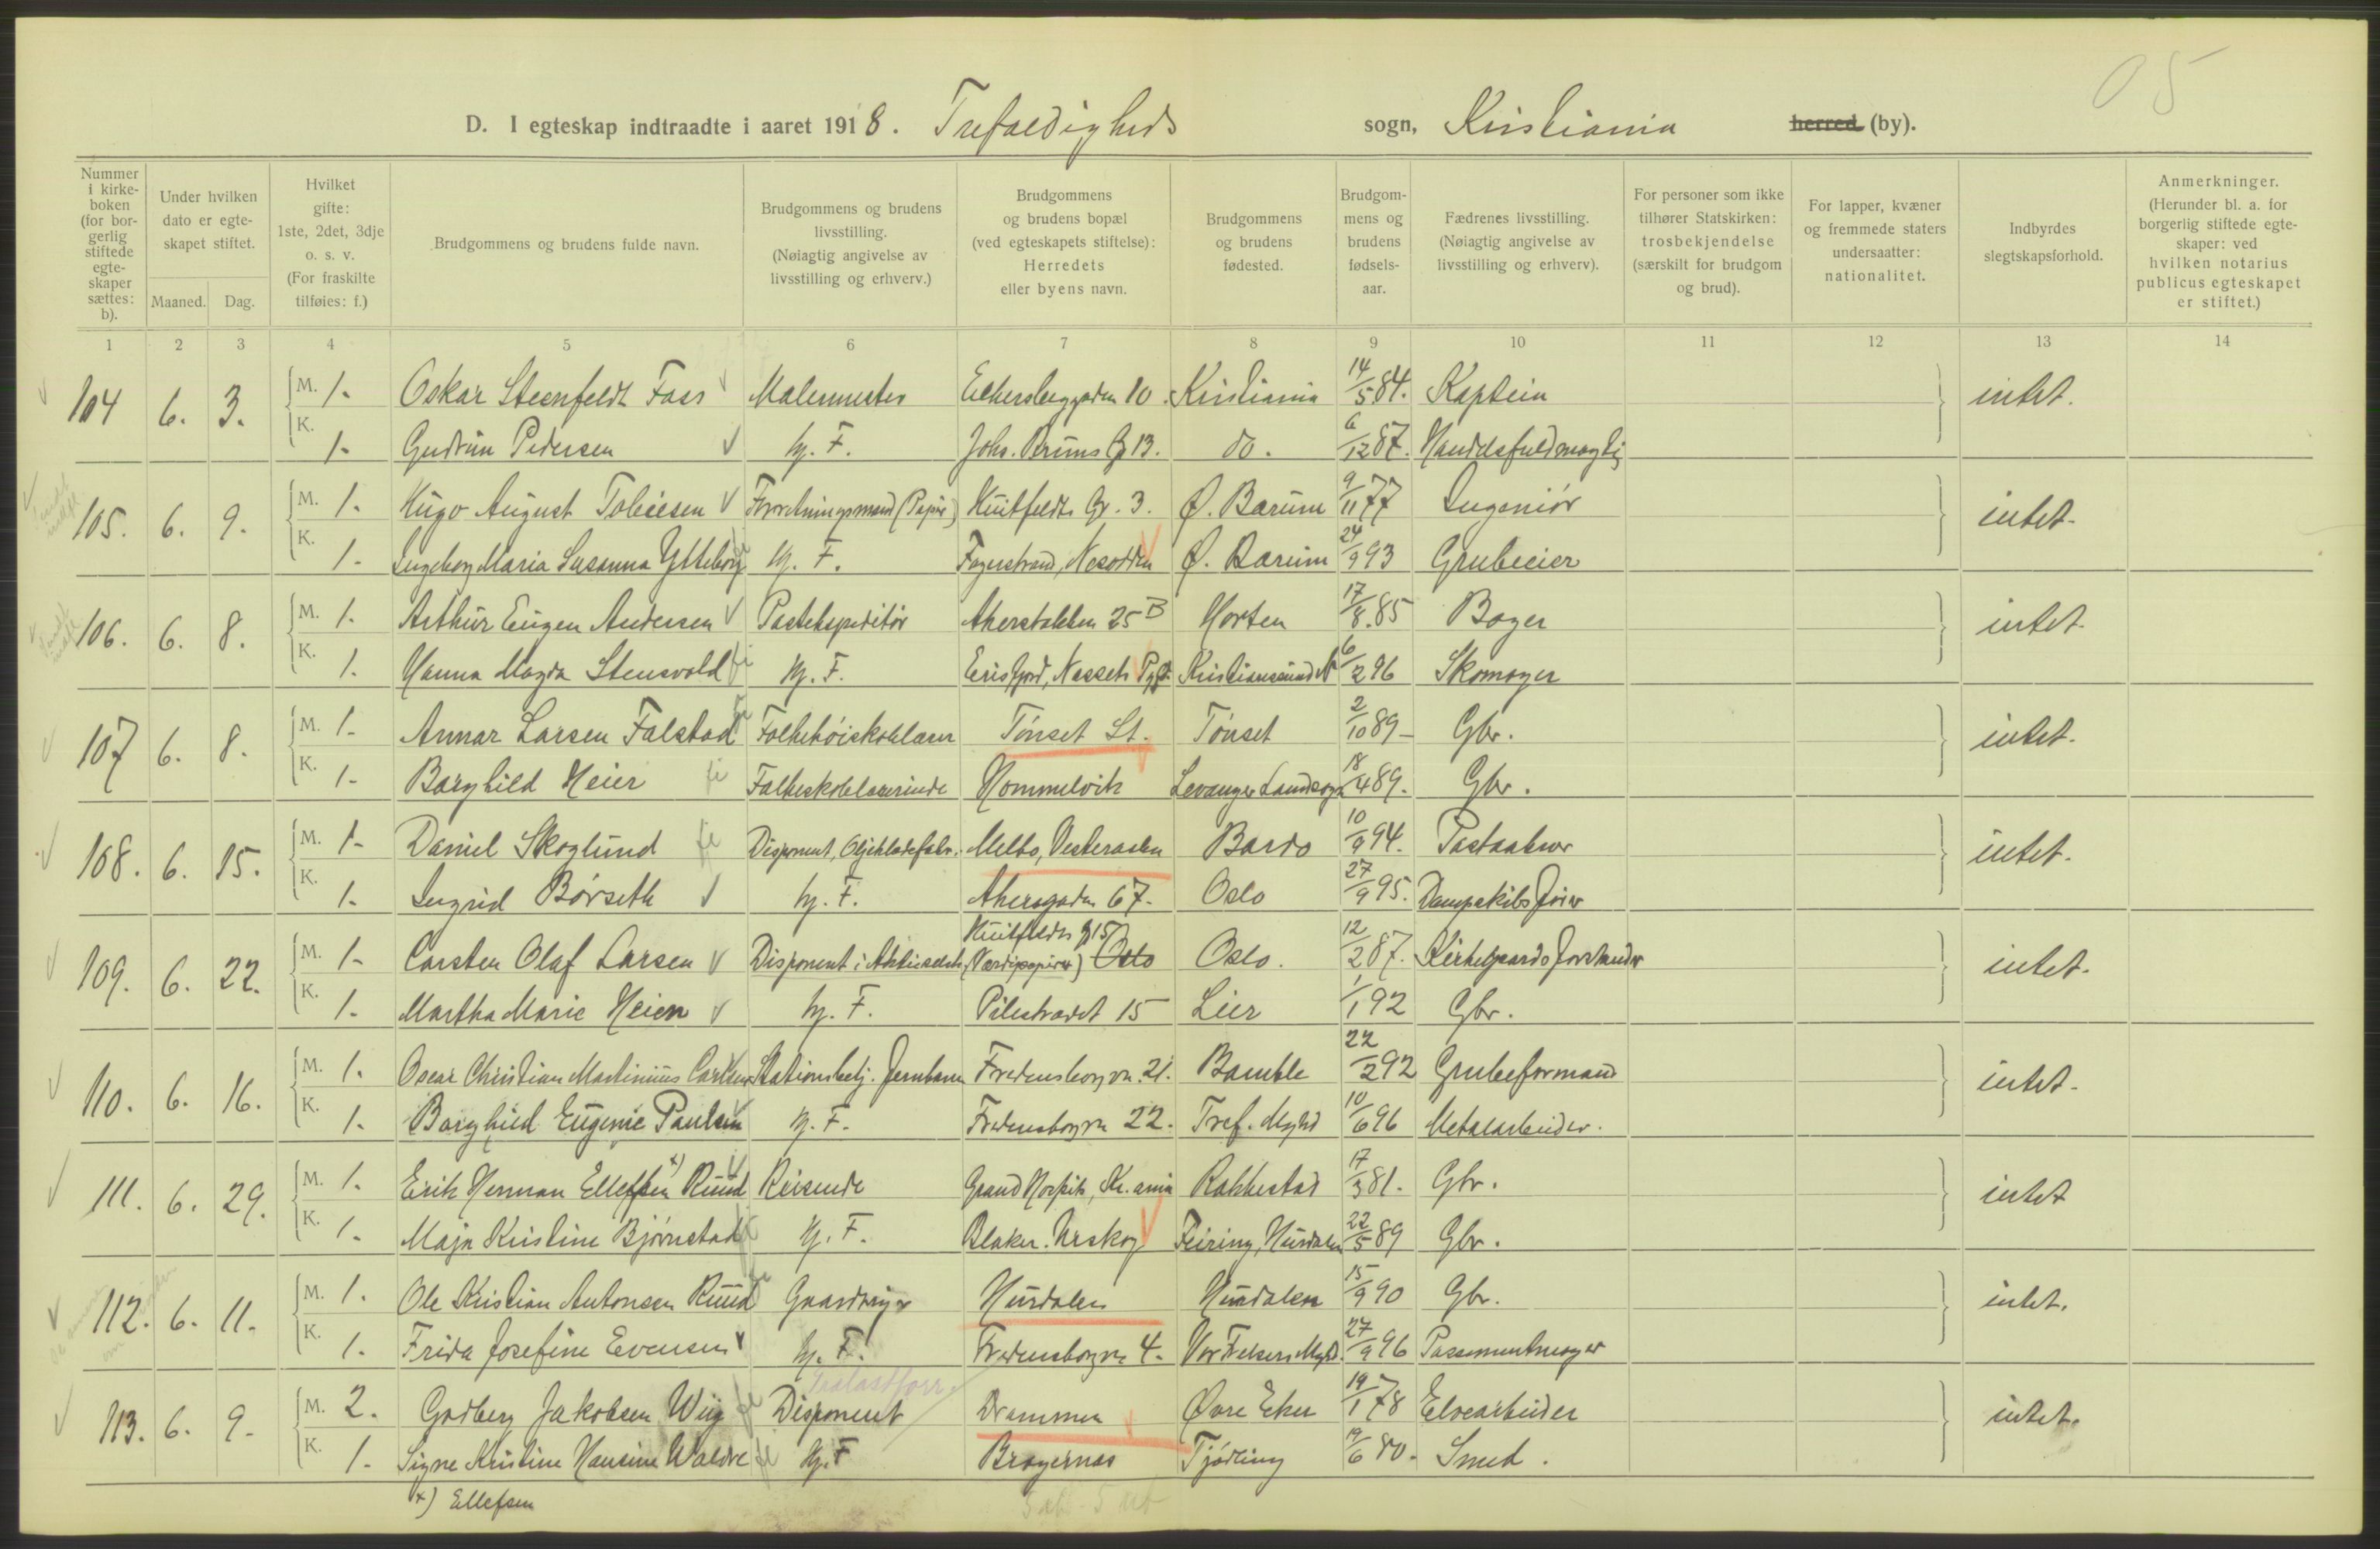 05
D. I egteskap indtraadte i aaret 1918. Trefoldigheds sogn, Kristiania herred (by).
Nummer i kirkeboken (for borgerlig stiftede egteskaper sættes: b).
Under hvilken dato er egteskapet stiftet.
Maaned. Dag.
Hvilket gifte: 1ste, 2det, 3dje o. s. v. (For fraskilte tilføies: f.)
Brudgommens og brudens fulde navn.
Brudgommens og brudens livsstilling. (Nøiagtig angivelse av livsstilling og erhverv.)
Brudgommens og brudens bopæl (ved egteskapets stiftelse): Herredets eller byens navn.
Brudgommens og brudens fødested.
Brudgommens og brudens fødselsaar.
Fædrenes livsstilling. (Nøiagtig angivelse av livsstilling og erhverv).
For personer som ikke tilhører Statskirken: trosbekjendelse (særskilt for brudgom og brud).
For lapper, kvæner og fremmede staters undersaatter: nationalitet.
Indbyrdes slegtskapsforhold.
Anmerkninger. (Herunder bl. a. for borgerlig stiftede egteskaper: ved hvilken notarius publicus egteskapet er stiftet.)
1 2 3 4 5 6 7 8 9 10 11 12 13 14
104 6. 3. M. 1. Oskar Steenfeldt Foss Malermester Eckersberggaden 10. Kristiania 14/5 84. Kaptein intet.
K. 1. Gudrun Pedersen hj. F. Johs. Bruns G 13. do. 6/12 87. Handelsfuldmægtig
105. 6. 9. M. 1. Hugo August Tobiesen Forretningsmand (Papir) Huitfeldts Gr. 3. Ø. Bærum 9/11 77 Ingeniør intet.
K. 1. Ingeborg Maria Susanna Ytteborg hj. F. Fagerstrand, Nesodden Ø. Bærum 24/9 93 Grubeeier
106. 6. 8. M. 1. Arthur Eugen Andersen Postekspeditør Akersbakken 25 B Horten 17/8 85 Bager intet.
K. 1. Hanna Magda Stensvold hj. F. Erisfjord, Nessets Pgd. Kristianssund N 6/2 96 Skomager
107 6. 8. M. 1. Annar Larsen Falstad Folkehøiskolelærer Tønset St. Tønset 2/10 89 Gbr. intet.
K. 1. Borghild Heier Folkeskolelærerinde Hommelvik Levanger Landsogn 18/4 89. Gbr.
108. 6. 15. M. 1. Daniel Skoglund Disponent, Oljeklædefabr. Melbo, Vesteraalen Bardo 10/9 94. Postaabner intet.
K. 1. Ingrid Børseth hj. F. Akersgaden 67. Oslo 27/9 95. Dampskibsfører
Huitfeldts g 15
109. 6. 22. M. 1. Carsten Olaf Larsen Disponent i Aktieselsk. (Værdipapirer) Oslo Oslo. 12/2 87. Kirkegaardsforstander intet.
K. 1. Martha Marie Heien hj. F. Pilestrædet 15 Lier 1/1 92 Gbr.
110. 6. 16. M. 1. Oscar Christian Martinius Carlsen Stationsbetj. Jernbanen Fredensborgvn. 21. Bamble 22/2 92 Grubeformand intet.
K. 1. Borghild Eugenie Paulsen hj. F. Fredensborgvn 22. Tref. Mghd 10/6 96 Metalarbeider.
111. 6. 29. M. 1. Erik Herman Elleffsen x) Ruud Reisende Grand Hospits, Kr.ania Rakkestad 17/3 81. Gbr. intet
K. 1. Maja Kristine Bjørnstad hj. F. Blaker. Urskog Feiring, Hurdalen 22/5 89 Gbr.
112. 6. 11. M. 1. Ole Kristian Antonsen Ruud Gaardbruger Hurdalen Hurdalen 15/9 90 Gbr. intet.
K. 1. Frida Josefine Evensen hj. F. Fredensborgvn 4. Vor Frelsers Mghd. 27/9 96 Possementmager
Trælastforr.
113. 6. 9. M. 2. Godberg Jakobsen Wiig Disponent Drammen Øvre Eker 19/1 78 Elvearbeider intet.
K. 1. Signe Kristine Hansine Waldre hj. F Bragernæs Tjødling 19/6 80. Smed.
x) Ellefsen